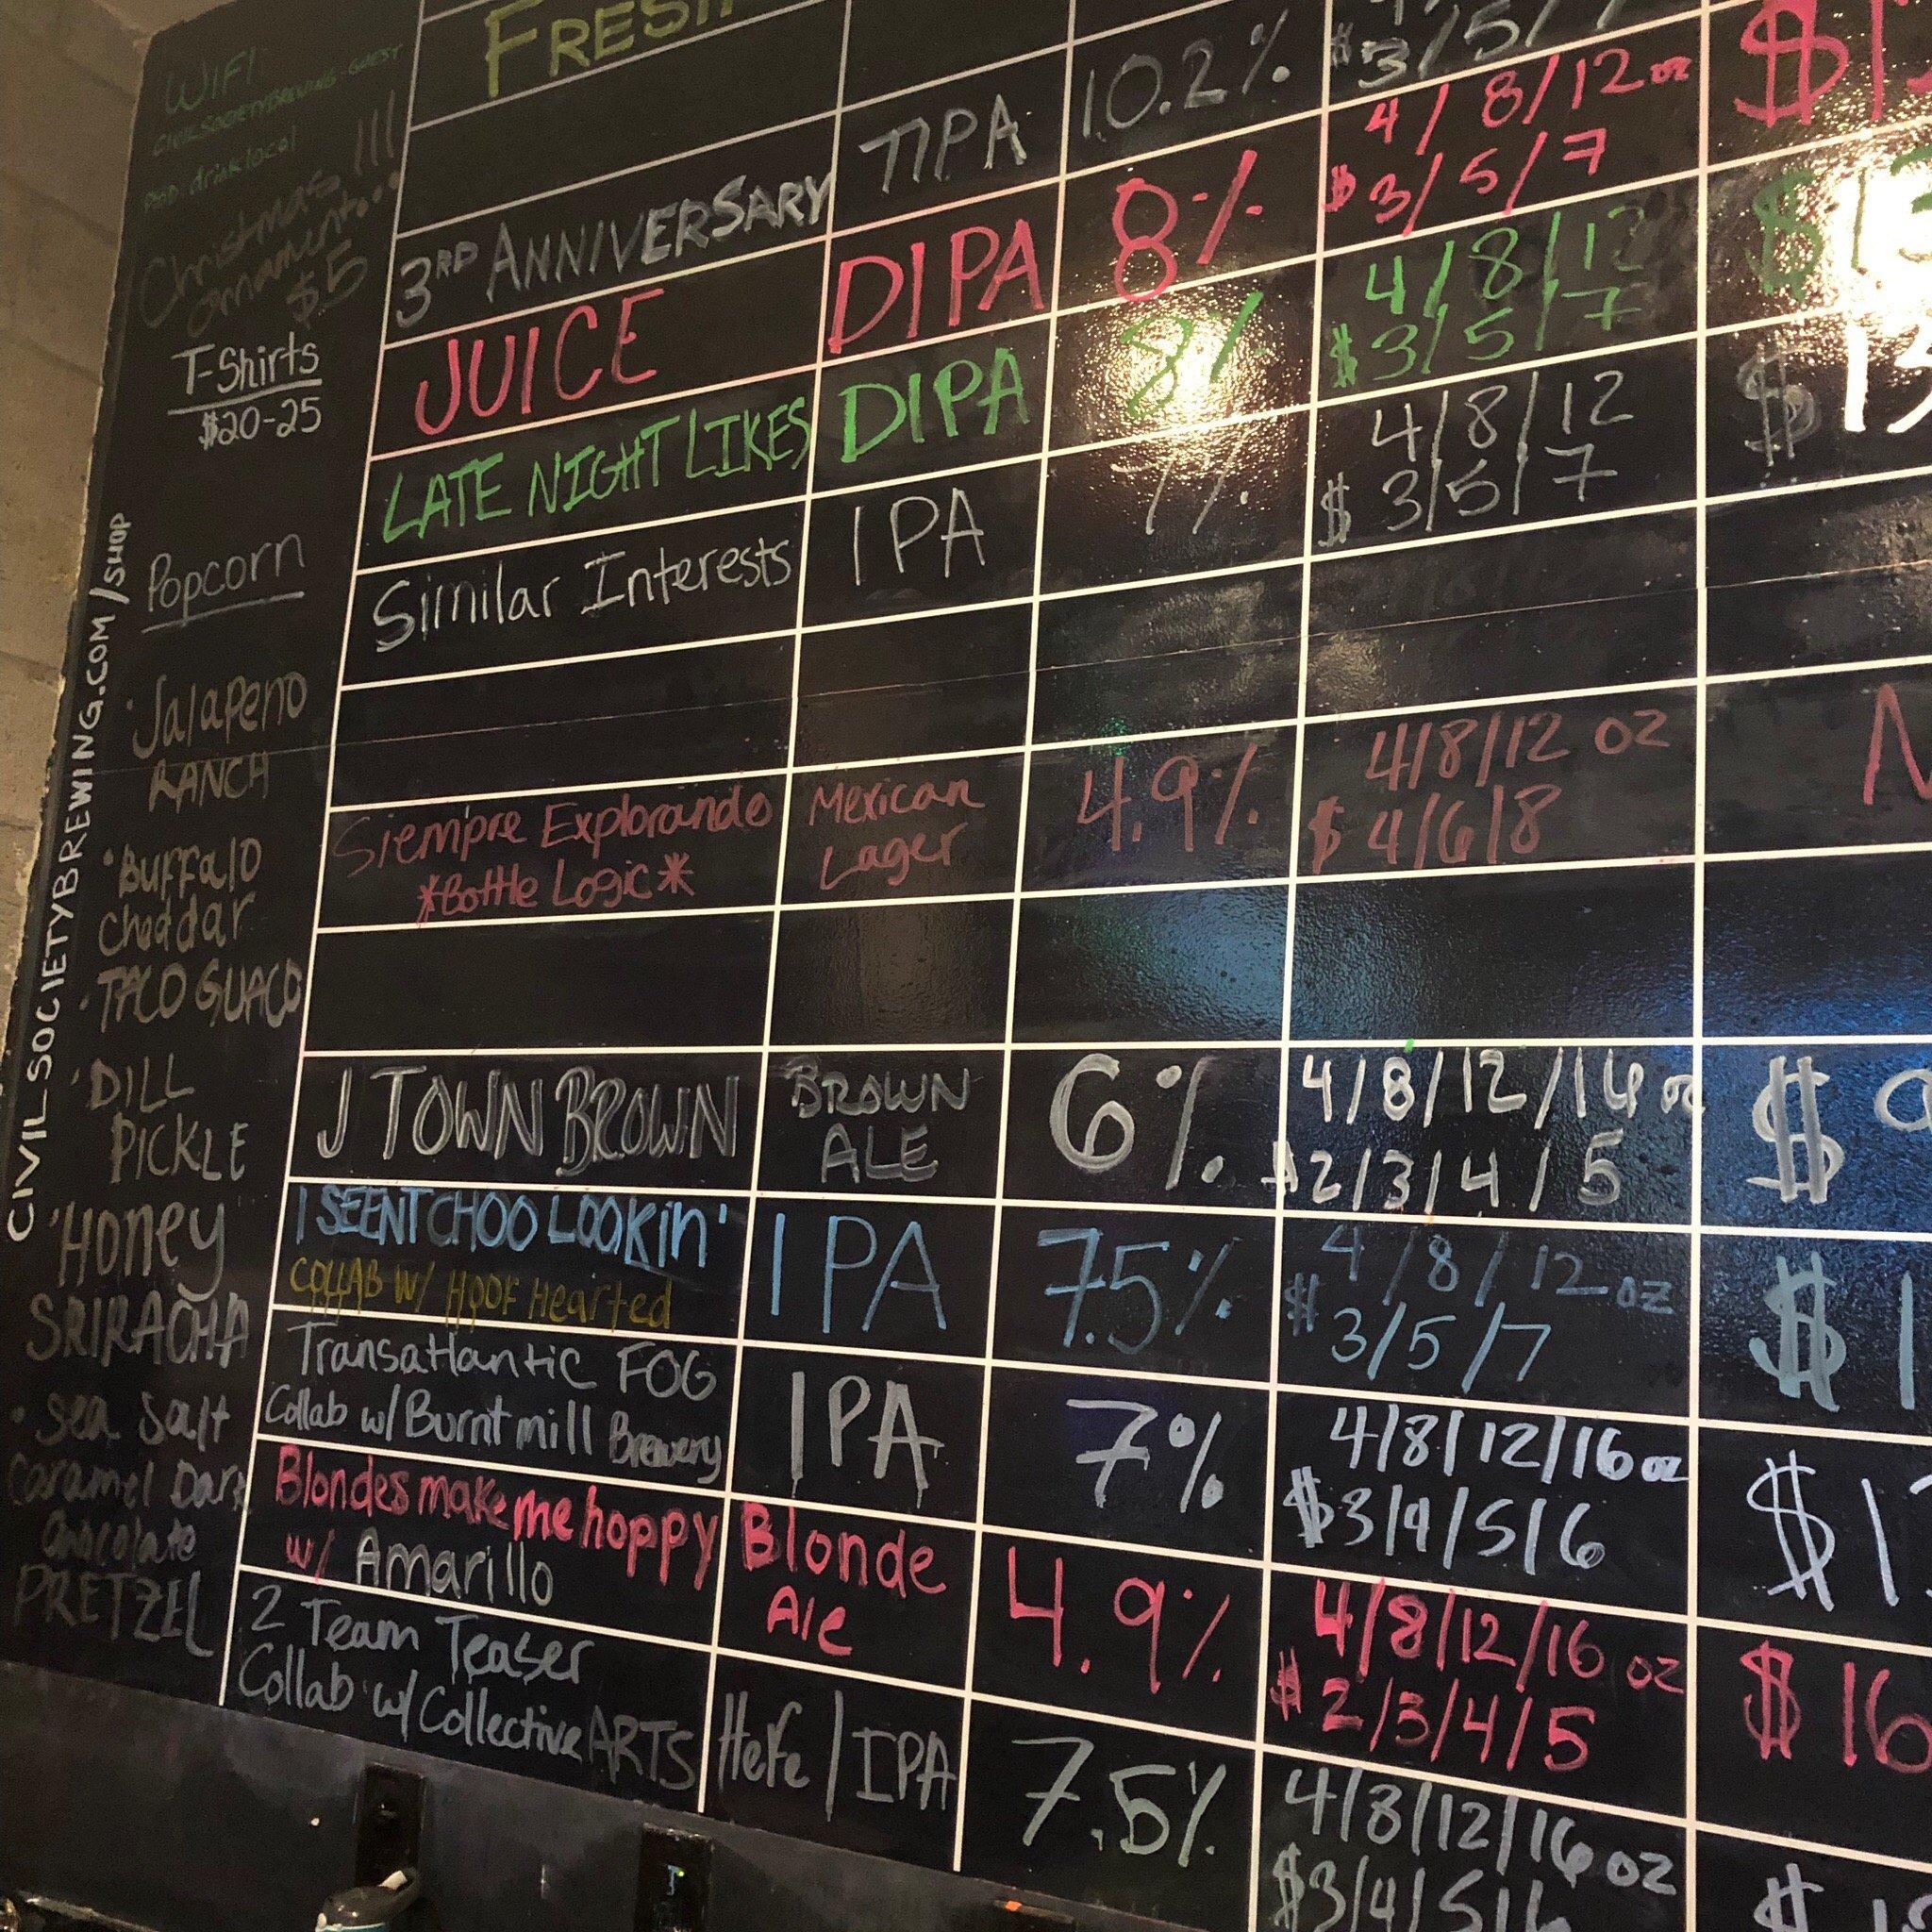 WIFI:
CIVILSOCIETYBREWING-GUEST
PWD: drinklocal
Christmas
ornament...
$5
T-Shirts
$20-25
Popcorn
· Jalapeno
RANCH
· Buffalo
Cheddar
· TACO GUACO
· DILL
PICKLE
· Honey
SRIRACHA
· Sea Salt
Caramel Dark
Chocolate
PRETZEL
CIVILSOCIETYBREWING.COM/SHOP
FRESH
3RD ANNIVERSARY TIPA 10.2%
$ 3/5/7
JUICE DIPA 8% 4/8/12 oz
$ 3/5/7
LATE NIGHT LIKES DIPA 8% 4/8/12
$ 3/5/7
Similar Interests IPA 7% 4/8/12
$ 3/5/7
Siempre Explorando Mexican 4.9% 4/8/12 oz
*Bottle Logic* Lager $ 4/6/8
J TOWN BROWN BROWN 6% 4/8/12/16 oz $9
ALE $2/3/4/5
I SEENT CHOO LOOKin' IPA 7.5% 4/8/12 oz
COLLAB W/ HOOF Hearted $ 3/5/7
Transatlantic FOG IPA 7% 4/8/12/16 oz
Collab w/ Burnt mill Brewery $3/4/5/6
Blondes make me hoppy Blonde 4.9% 4/8/12/16 oz $16
w/ Amarillo Ale $ 2/3/4/5
2 Team Teaser Hefe/IPA 7.5% 4/8/12/16 oz
Collab w/ Collective ARTS $3/4/5/6